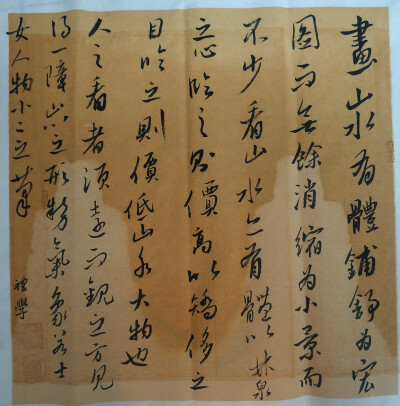 畫山水有體鋪舒為宏
圖而無餘消縮為小景而
不少看山水亦有體以林泉
之心臨之則價高以驕侈之
目臨之則價低山水大物也
人之看者須遠而觀之方見
得一障山之形勢氣象若士
女人物小小之筆
禮學